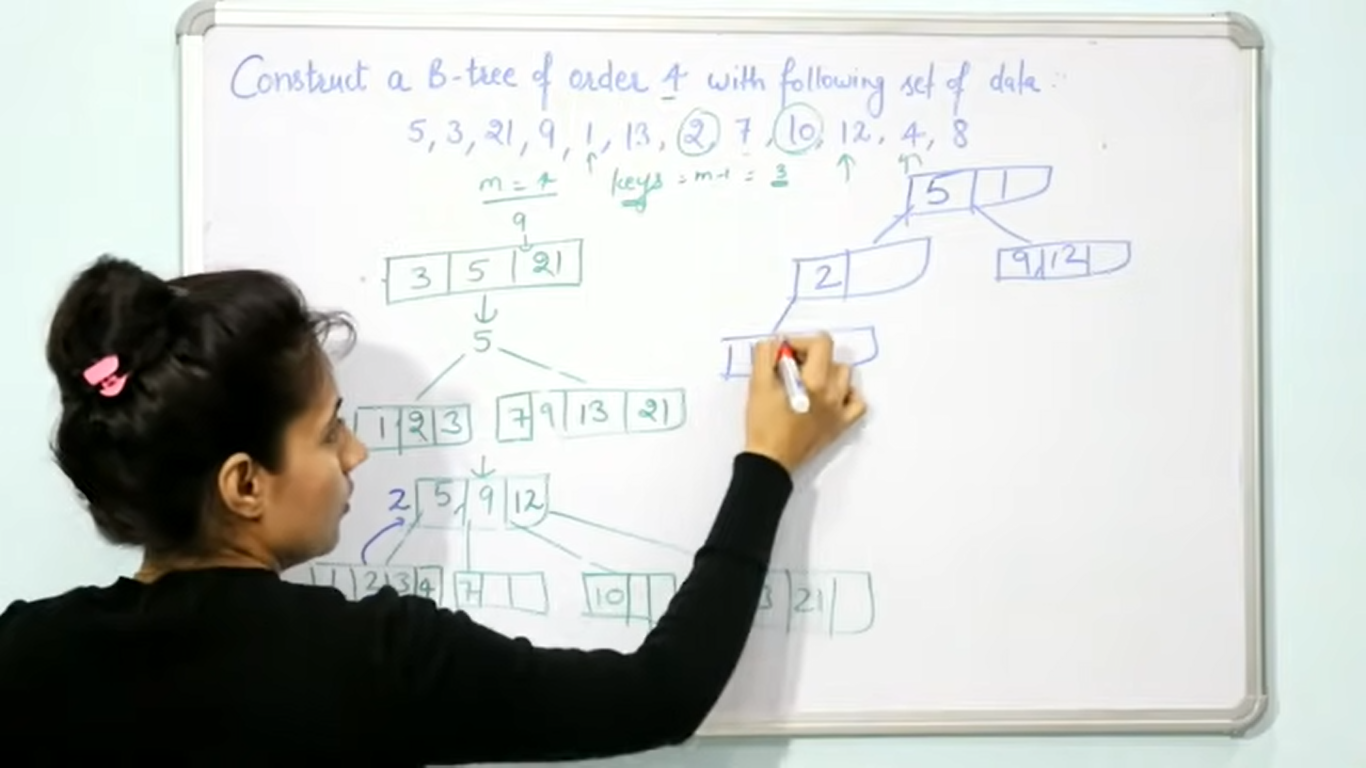 Construct a B-tree of order 4 with following set of data :
5, 3, 21, 9, 1, 13, 2, 7, 10, 12, 4, 8
m = 4 keys = m-1 = 3
9
3 5 21
5
1 2 3 7 9 13 21
2 5 9 12
1 2 3 4 7 10 21
5
2 9 12
1